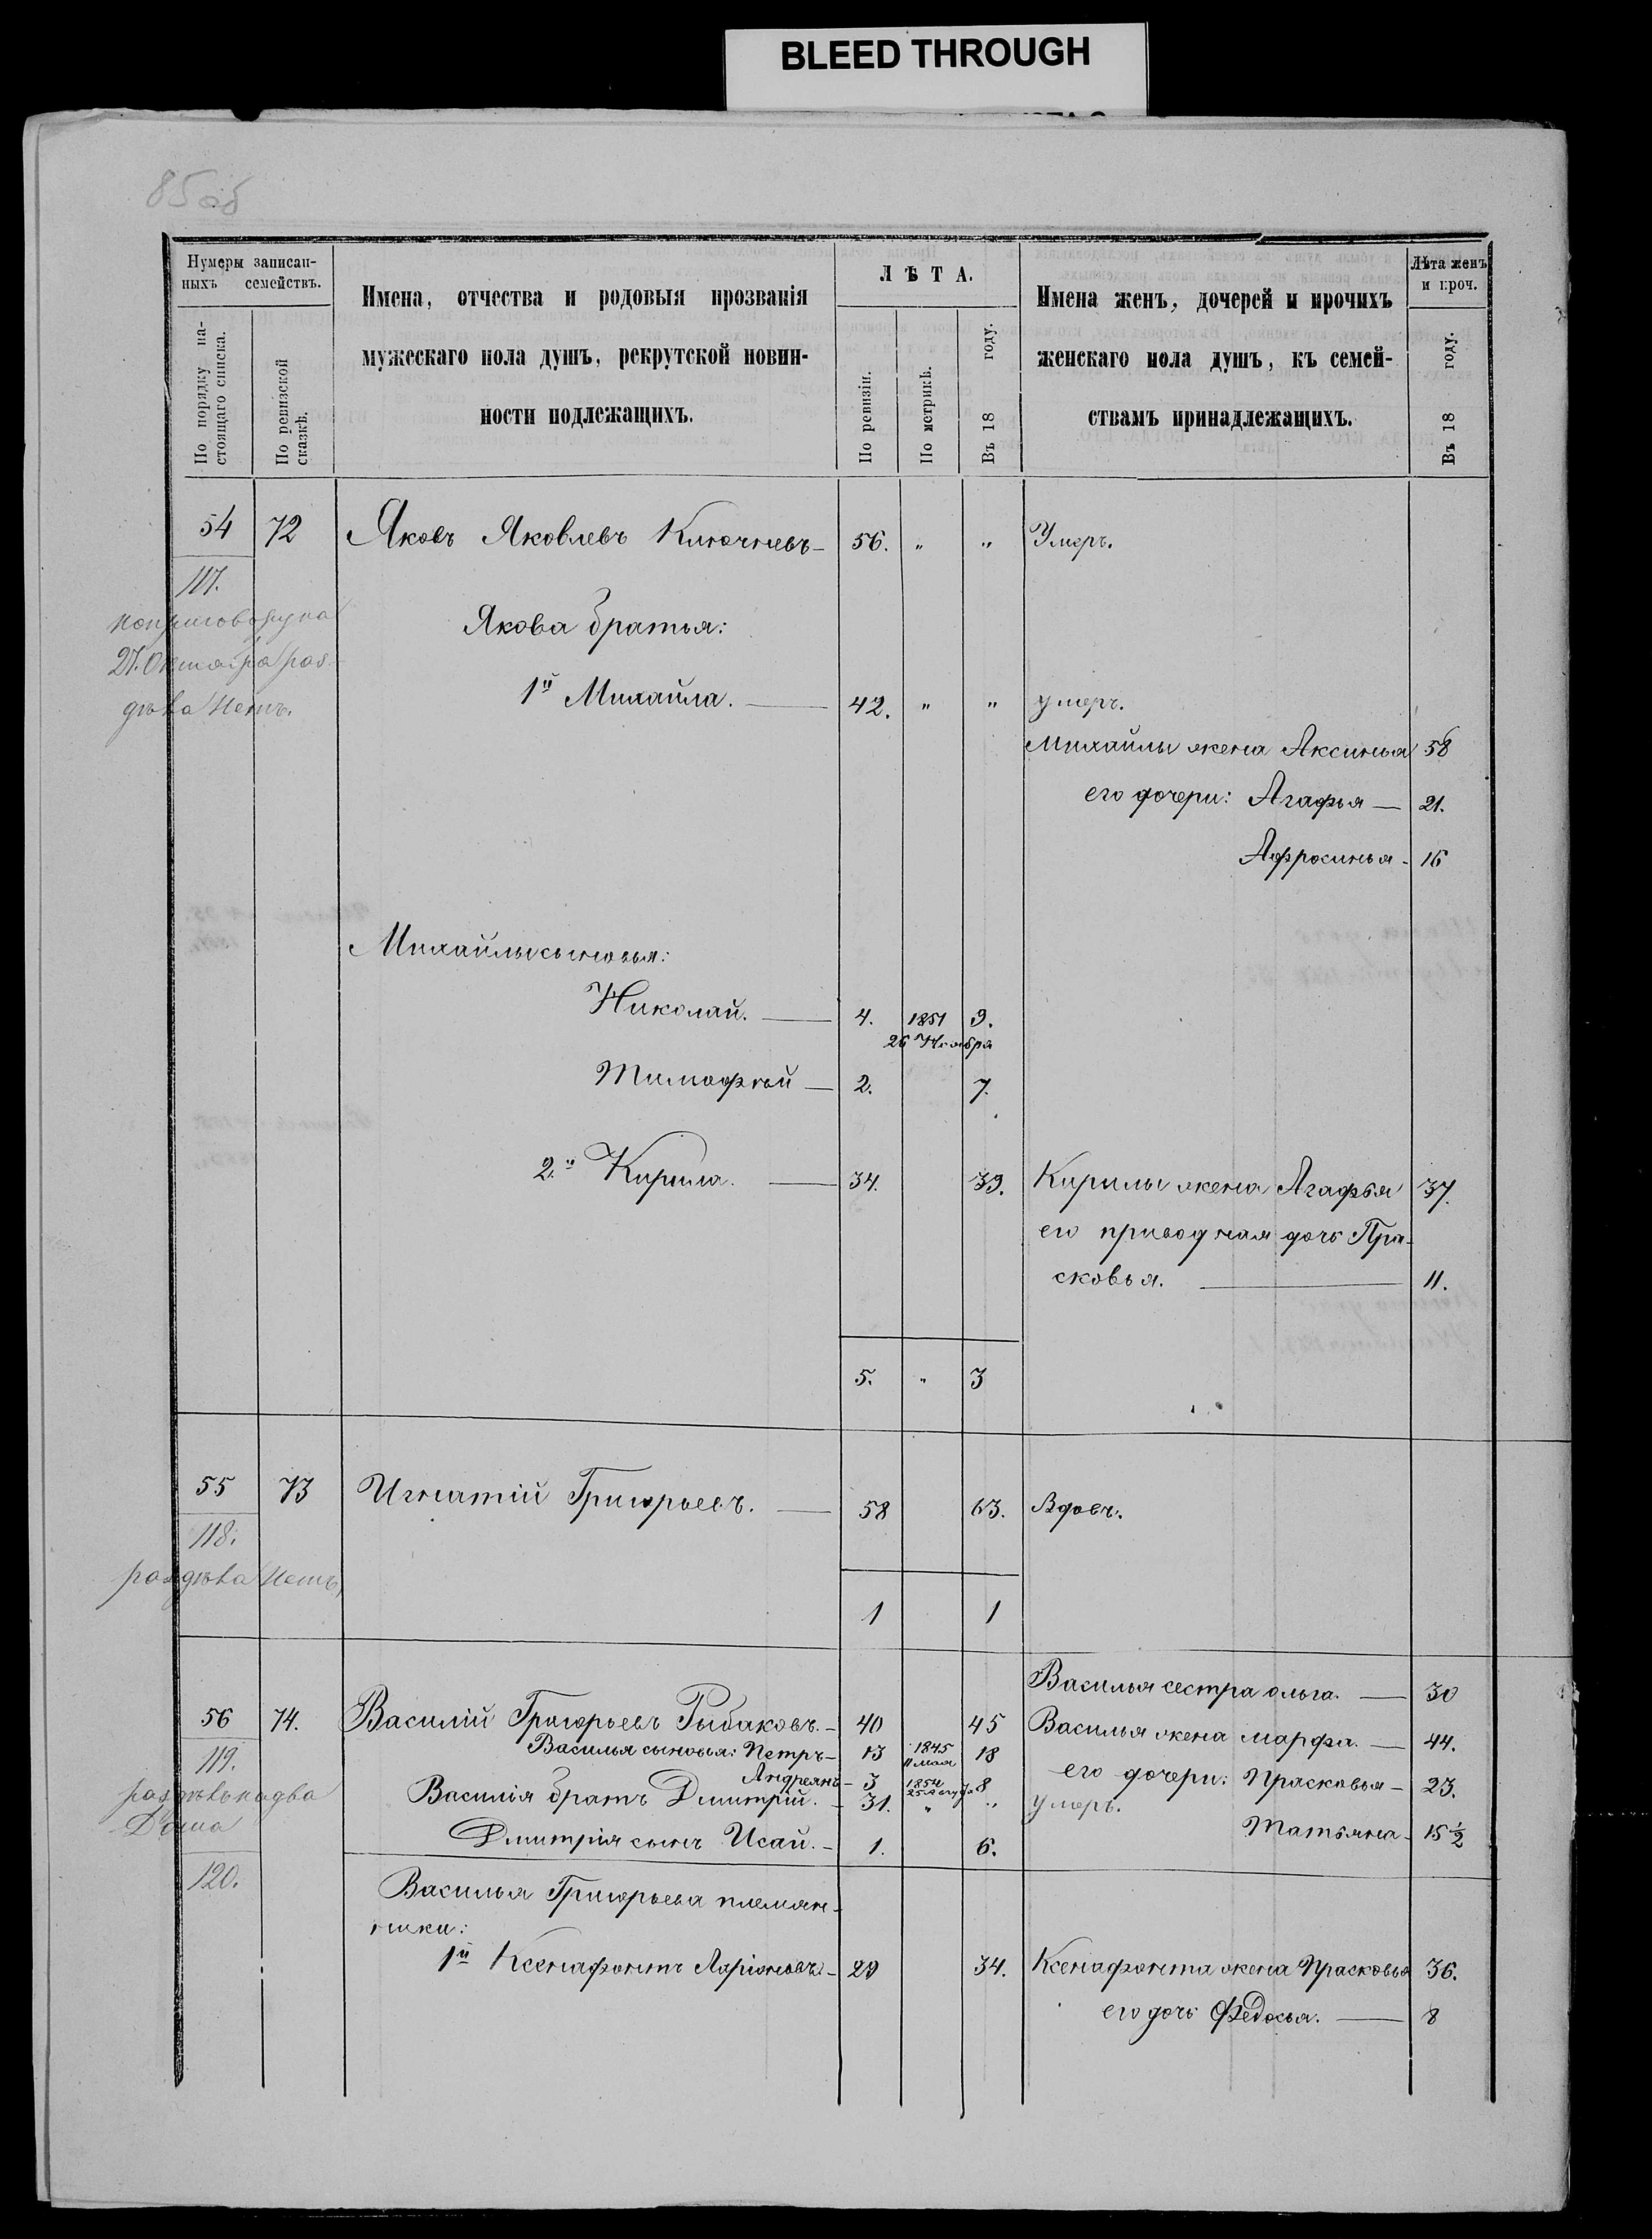 BLEED THROUGH
85 об
Нумеры записан-
ныхъ семействъ.
По порядку на-
стоящаго списка.
По ревизской
сказкѣ.
Имена, отчества и родовыя прозванія
мужескаго пола душъ, рекрутской повин-
ности подлежащихъ.
ЛѢТА.
По ревизіи.
По метрикѣ.
Въ 18 году.
Имена женъ, дочерей и прочихъ
женскаго пола душъ, къ семей-
ствамъ принадлежащихъ.
Лѣта женъ
и проч.
Въ 18 году.
54 72 Яковъ Яковлевъ Ключневъ - 56. " " Умеръ.
117.
27. Октября раз-
дѣла Нетъ.
Якова братья:
1й Михайла. — 42. " " умеръ.
Михайлы жена Аксинья 58
его дочери: Агафья — 21.
Афросинья - 16
Михайлы сыновья:
Николай. — 4. 1851 9.
26 Ноября
Тимофей — 2. 7.
2й Кирила. — 34. 39. Кирилы жена Агафья 37.
его приводная дочь Пра-
сковья. — 11.
5. " 3
55 73 Игнатій Григорьевъ. — 58 63. Вдовъ.
118.
раздѣла Нетъ,
1 1
Василья сестра ольга. — 30
56 74. Василій Григорьевъ Рыбаковъ. - 40 45 Василья жена марфа. — 44.
119.
Василья сыновья: Петръ - 13 1845 11 мая 18
его дочери: Прасковья - 23.
Андреянъ - 3 1854 25 Августа 8
раздѣлъ на два
Дома
Василія братъ Дмитрій. - 31. " " умеръ.
Татьяна - 15 ½
Дмитрія сынъ Исай. - 1. 6.
120.
Василья Григорьева племян-
ники:
1й Ксенафонтъ Ларіоновъ. - 29 34. Ксенафонта жена Прасковья 36.
его дочь Федосья. — 8